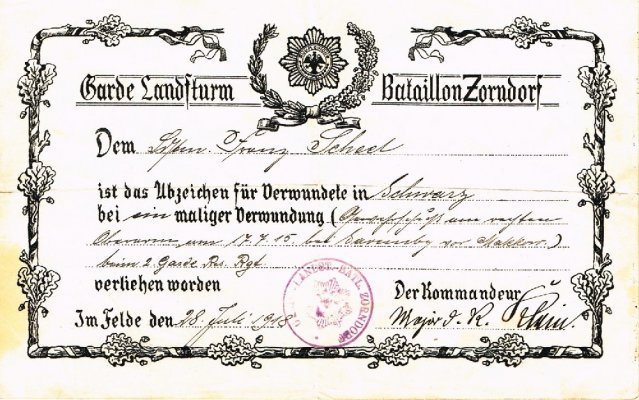 Garde Landsturm Bataillon Zorndorf
Dem Ldstm. Franz Scheel
ist das Abzeichen für Verwundete in Schwarz
bei ein maliger Verwundung ( am rechten
Oberarm am 17.7.15 bei vor )
beim 2. Garde Res. Rgt.
verliehen worden
Der Kommandeur
Im Felde den 28. Juli 1918
Major d. R.
LANDST. BATL. ZORNDORF